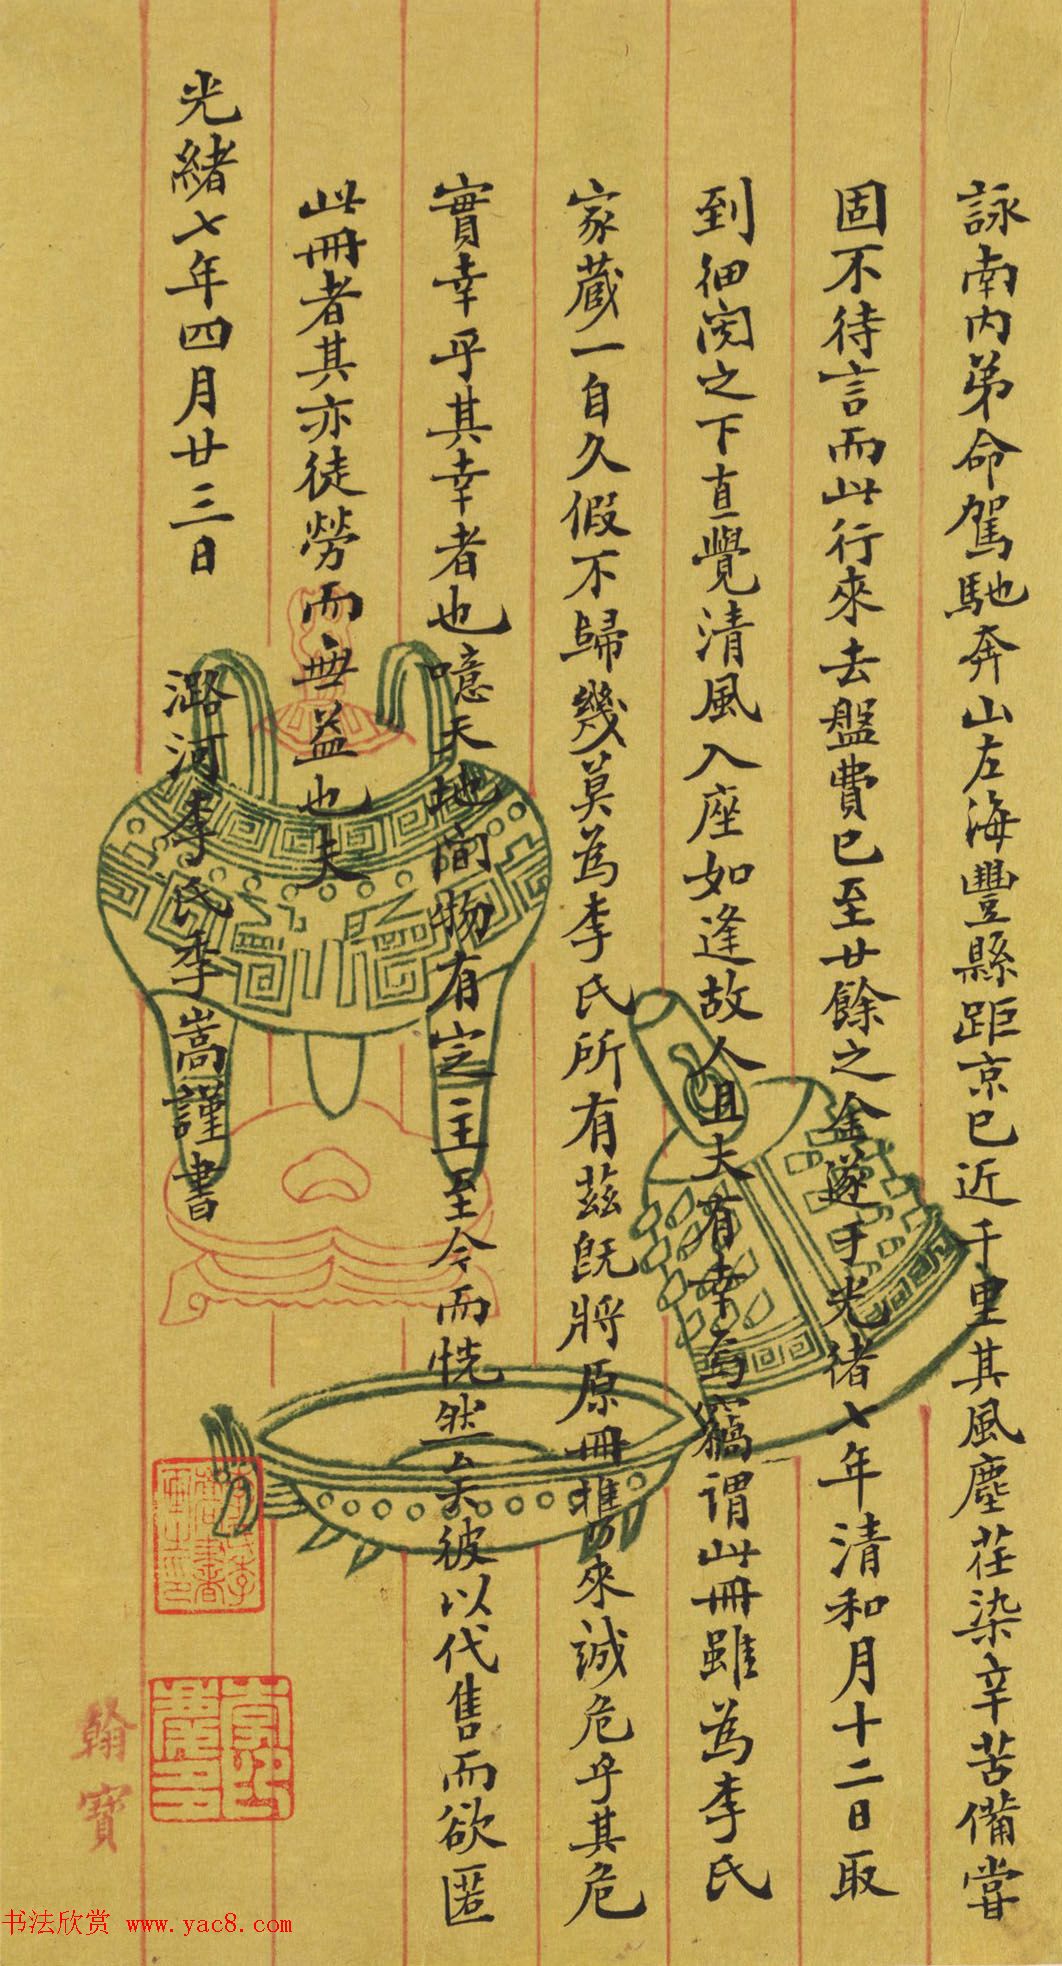 詠南內弟命駕馳奔山左海豐縣距京已近千里其風塵荏染辛苦備嘗
固不待言而此行來去盤費已至廿餘之金遂于光緒七年清和月十二日取
到細閱之下直覺清風入座如逢故人且夫有幸焉竊謂此冊雖為李氏
家藏一自久假不歸幾莫為李氏所有茲既將原冊攜來誠危乎其危
實幸乎其幸者也噫天地間物有定主至今而恍然矣彼以代售而欲匿
此冊者其亦徒勞而無益也夫
光緒七年四月廿三日 潞河李氏季嵩謹書
翰寶
书法欣赏 www.yac8.com